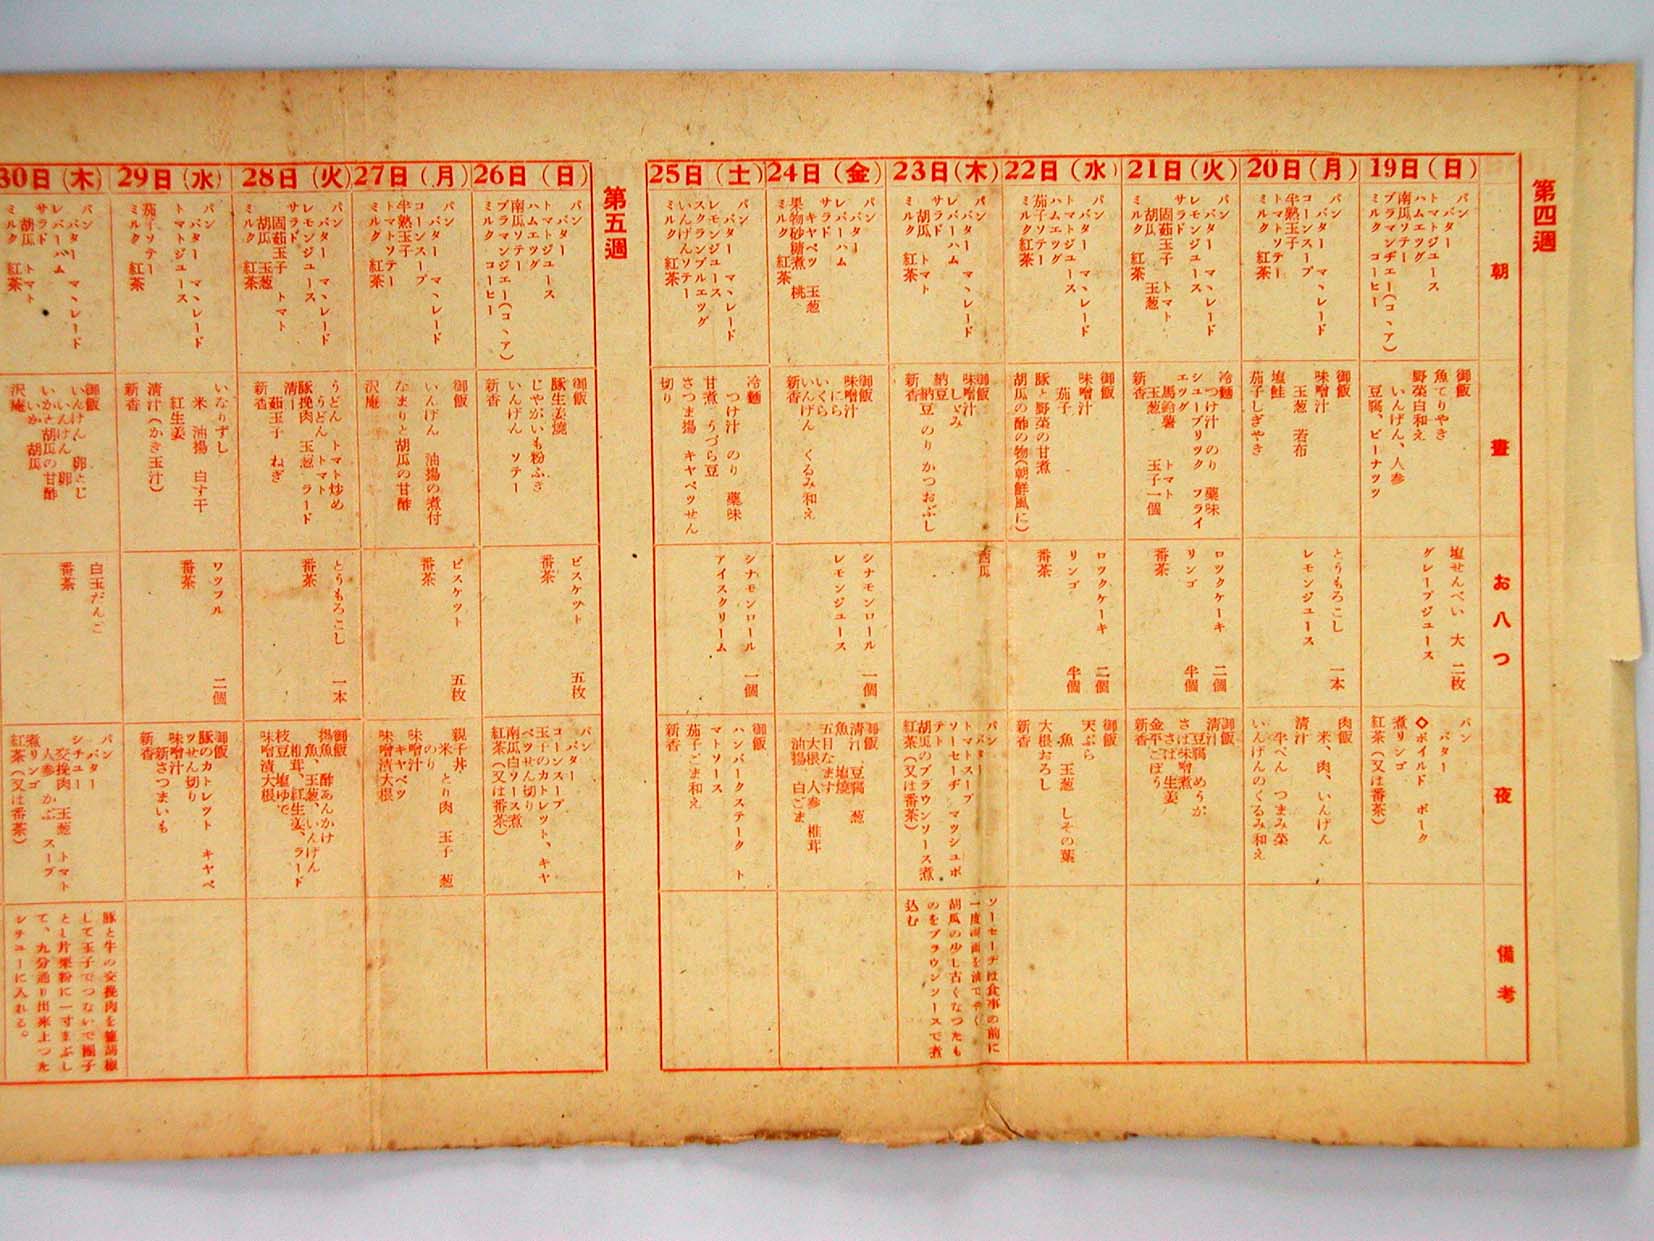 第四週
朝
晝
お八つ
夜
備考
19日(日)
パン
バター
トマトジュース
ハムエッグ
南瓜ソテー
ブラマンヂェー(コヽア)
ミルク コーヒー
御飯
魚てりやき
野菜白和え
いんげん、人参
豆腐、ピーナッツ
塩せんべい 大 二枚
グレープジュース
パン
バター
◇ボイルド ポーク
煮リンゴ
紅茶(又は番茶)
20日(月)
パン
バター マヽレード
コーンスープ
半熟玉子
トマトソテー
ミルク 紅茶
御飯
味噌汁
玉葱 若布
塩鮭
茄子しぎやき
とうもろこし 一本
レモンジュース
肉飯
米、肉、いんげん
清汁
半ぺん つまみ菜
いんげんのくるみ和え
21日(火)
パン
バター マヽレード
レモンジュース
サラド
固茹玉子 トマト
胡瓜 玉葱
ミルク 紅茶
冷麺
つけ汁 のり 薬味
シューブリック フライ
エッグ
馬鈴薯 トマト
玉葱 玉子一個
新香
ロックケーキ 二個
リンゴ 半個
番茶
御飯
清汁
豆腐 めうが
さば味噌煮
さば 生姜
金平ごぼう
新香
22日(水)
パン
バター マヽレード
トマトジュース
ハムエッグ
茄子ソテー
ミルク 紅茶
御飯
味噌汁
茄子
豚と野菜の甘煮
胡瓜の酢の物(朝鮮風に)
ロックケーキ 二個
リンゴ 半個
番茶
御飯
天ぷら
魚 玉葱 しその葉
大根おろし
新香
23日(木)
パン
バター マヽレード
レバーハム
サラド
胡瓜 トマト
ミルク 紅茶
御飯
味噌汁
しゞみ
納豆
納豆 のり かつおぶし
新香
西瓜
パン
バター
トマトスープ
ソーセーヂ マッシュポ
テト
胡瓜のブラウンソース煮
紅茶(又は番茶)
ソーセーヂは食事の前に
一度両面を油でやく
胡瓜の少し古くなつたも
のをブラウンソースで煮
込む
24日(金)
パン
バター
レバーハム
サラド
キャベツ 玉葱
果物砂糖煮 桃
ミルク 紅茶
御飯
味噌汁
にら
いくら
いんげん くるみ和え
新香
シナモンロール 一個
レモンジュース
御飯
清汁 豆腐 葱
魚 塩焼
五目なます
大根 人参 椎茸
油揚 白ごま
25日(土)
パン
バター マヽレード
レモンジュース
スクランブルエッグ
いんげんソテー
ミルク 紅茶
冷麺
つけ汁 のり 薬味
甘煮 うづら豆
さつま揚 キャベツせん
切り
シナモンロール 一個
アイスクリーム
御飯
ハンバークステーク ト
マトソース
茄子ごま和え
新香
第五週
26日(日)
パン
バター
トマトジュース
ハムエッグ
南瓜ソテー
ブラマンジェー(コヽア)
ミルク コーヒー
御飯
豚生姜焼
じゃがいも粉ふき
いんげん ソテー
新香
ビスケット 五枚
番茶
パン
バター
コーンスープ
玉子のカトレット、キャ
ベツせん切り
南瓜白ソース煮
紅茶(又は番茶)
27日(月)
パン
バター マヽレード
コーンスープ
半熟玉子
トマトソテー
ミルク 紅茶
御飯
いんげん 油揚の煮付
なまりと胡瓜の甘酢
沢庵
ビスケット 五枚
番茶
親子丼
米 とり肉 玉子 葱
のり
味噌汁
キャベツ
味噌漬大根
28日(火)
パン
バター マヽレード
レモンジュース
サラド
固茹玉子 トマト
胡瓜 玉葱
ミルク 紅茶
うどん トマト炒め
うどん トマト
豚挽肉 玉葱 ラード
清汁
茹玉子 ねぎ
新香
とうもろこし 一本
番茶
御飯
揚魚 酢あんかけ
魚、玉葱、いんげん
椎茸、紅生姜、ラード
枝豆 塩ゆで
味噌漬大根
29日(水)
パン
バター マヽレード
トマトジュース
茄子ソテー
ミルク 紅茶
いなりずし
米 油揚 白す干
紅生姜
清汁(かき玉汁)
新香
ワッフル 二個
番茶
御飯
豚のカトレット キャベ
ツせん切り
味噌汁
新さつまいも
新香
30日(木)
パン
バター マヽレード
レバーハム
サラド
胡瓜 トマト
ミルク 紅茶
御飯
いんげん 卵とじ
いんげん 卵
いかと胡瓜の甘酢
いか 胡瓜
沢庵
白玉だんご
番茶
パン
バター
シチュー
交挽肉 玉葱 トマト
人参 かぶ スープ
煮リンゴ
紅茶(又は番茶)
豚と牛の交挽肉を塩胡椒
して玉子でつないで団子
とし片栗粉に一寸まぶし
て、九分通り出来上つた
シチューに入れる。